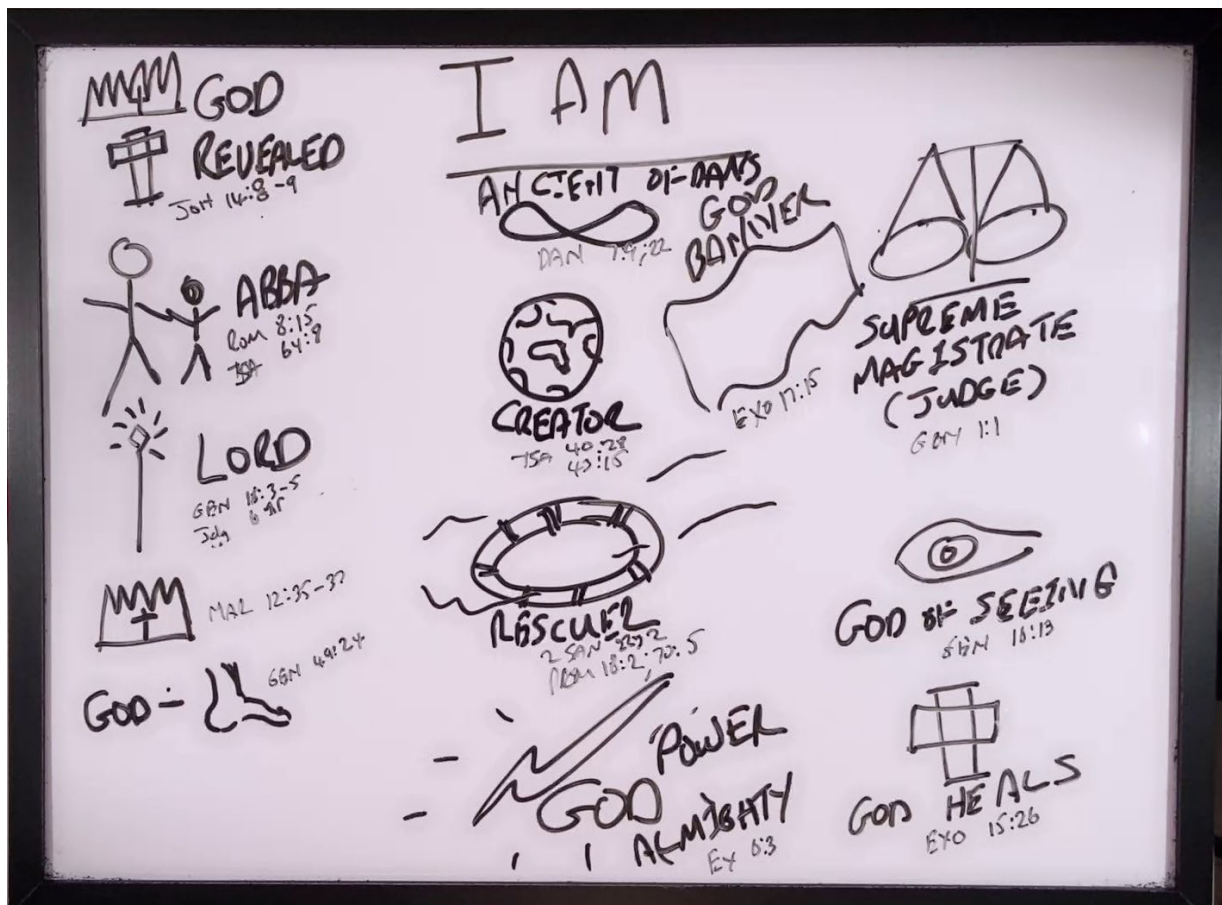 GOD
REVEALED
JOH 14:8-9
ABBA
ROM 8:15
ISA 64:8
LORD
GEN 18:3-5
6
12:35-37
GOD -
GEN 49:24
I AM
ANCIENT OF DAYS
DAN 7:9,22
GOD
BANNER
EXO 17:15
CREATOR
ISA 40:28
43:15
RESCUER
2 SAM
18:2; 70:5
POWER
GOD
ALMIGHTY
EX 6:3
SUPREME
MAGISTRATE
(JUDGE)
GEN 1:1
GOD OF SEEING
GEN 16:13
GOD HEALS
EXO 15:26